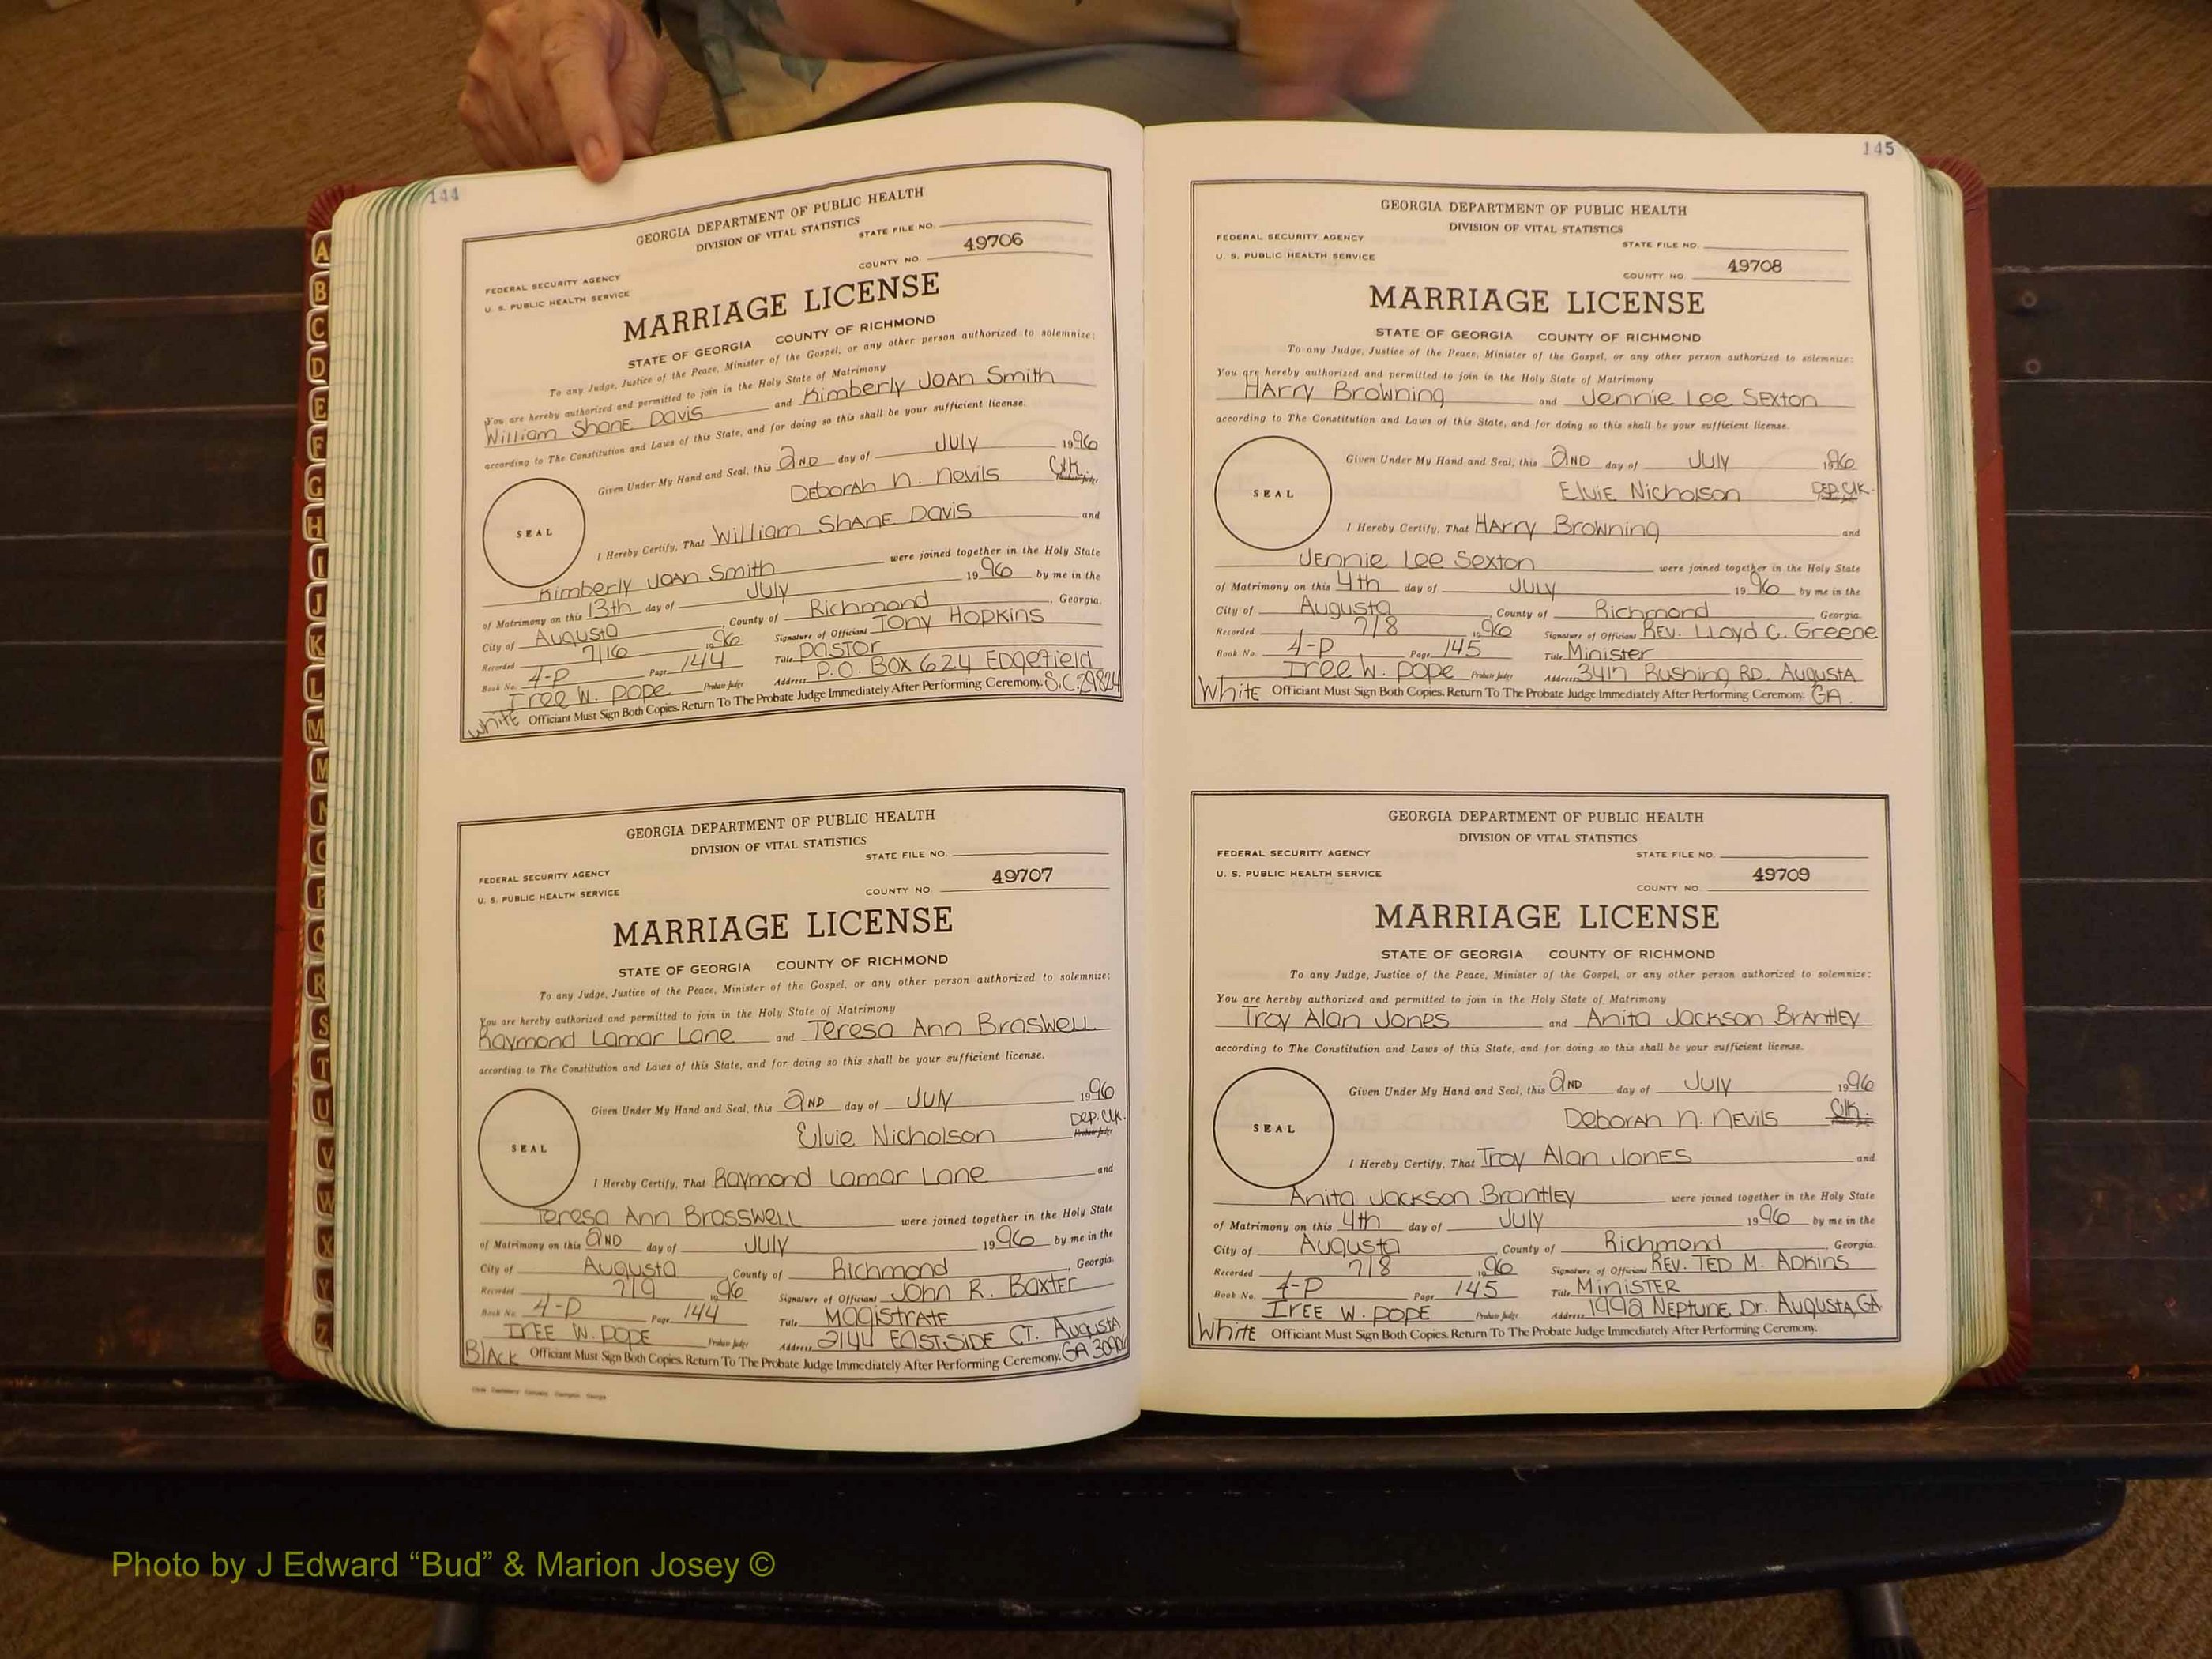 144
GEORGIA DEPARTMENT OF PUBLIC HEALTH
DIVISION OF VITAL STATISTICS
STATE FILE NO.
FEDERAL SECURITY AGENCY
COUNTY NO. 49706
U. S. PUBLIC HEALTH SERVICE
MARRIAGE LICENSE
STATE OF GEORGIA COUNTY OF RICHMOND
To any Judge, Justice of the Peace, Minister of the Gospel, or any other person authorized to solemnize:
You are hereby authorized and permitted to join in the Holy State of Matrimony
William Shane Davis and Kimberly Joan Smith
according to The Constitution and Laws of this State, and for doing so this shall be your sufficient license.
Given Under My Hand and Seal, this 2nd day of July 1996
Deborah N. Nevils Clk.
SEAL
I Hereby Certify, That William Shane Davis and
Kimberly Joan Smith were joined together in the Holy State
of Matrimony on this 13th day of July 1996 by me in the
City of Augusta, County of Richmond, Georgia.
Recorded 7/16 1996 Signature of Officiant Tony Hopkins
Book No. 4-P Page 144 Title Pastor
Iree W. Pope Probate Judge Address P.O. Box 624 Edgefield
White Officiant Must Sign Both Copies. Return To The Probate Judge Immediately After Performing Ceremony. S.C. 29824
GEORGIA DEPARTMENT OF PUBLIC HEALTH
DIVISION OF VITAL STATISTICS
STATE FILE NO.
FEDERAL SECURITY AGENCY
COUNTY NO 49707
U. S. PUBLIC HEALTH SERVICE
MARRIAGE LICENSE
STATE OF GEORGIA COUNTY OF RICHMOND
To any Judge, Justice of the Peace, Minister of the Gospel, or any other person authorized to solemnize:
You are hereby authorized and permitted to join in the Holy State of Matrimony
Raymond Lamar Lane and Teresa Ann Braswell
according to The Constitution and Laws of this State, and for doing so this shall be your sufficient license.
Given Under My Hand and Seal, this 2nd day of July 1996
Elvie Nicholson Dep. Clk.
Probate Judge
SEAL
I Hereby Certify, That Raymond Lamar Lane and
Teresa Ann Brasswell were joined together in the Holy State
of Matrimony on this 2nd day of July 1996 by me in the
City of Augusta, County of Richmond, Georgia.
Recorded 7/9 1996 Signature of Officiant John R. Baxter
Book No. 4-P Page 144 Title Magistrate
Iree W. Pope Probate Judge Address 2144 Eastside Ct. Augusta
Black Officiant Must Sign Both Copies. Return To The Probate Judge Immediately After Performing Ceremony. GA
145
GEORGIA DEPARTMENT OF PUBLIC HEALTH
DIVISION OF VITAL STATISTICS
FEDERAL SECURITY AGENCY
STATE FILE NO.
U. S. PUBLIC HEALTH SERVICE
COUNTY NO 49708
MARRIAGE LICENSE
STATE OF GEORGIA COUNTY OF RICHMOND
To any Judge, Justice of the Peace, Minister of the Gospel, or any other person authorized to solemnize:
You are hereby authorized and permitted to join in the Holy State of Matrimony
Harry Browning and Jennie Lee Sexton
according to The Constitution and Laws of this State, and for doing so this shall be your sufficient license.
Given Under My Hand and Seal, this 2nd day of July 1996
Elvie Nicholson Dep. Clk.
SEAL
I Hereby Certify, That Harry Browning and
Jennie Lee Sexton were joined together in the Holy State
of Matrimony on this 4th day of July 1996 by me in the
City of Augusta, County of Richmond, Georgia.
Recorded 7/8 1996 Signature of Officiant Rev. Lloyd C. Greene
Book No. 4-P Page 145 Title Minister
Iree W. Pope Probate Judge Address 3417 Rushing Rd. Augusta
White Officiant Must Sign Both Copies. Return To The Probate Judge Immediately After Performing Ceremony. GA.
GEORGIA DEPARTMENT OF PUBLIC HEALTH
DIVISION OF VITAL STATISTICS
FEDERAL SECURITY AGENCY
STATE FILE NO.
U. S. PUBLIC HEALTH SERVICE
COUNTY NO 49709
MARRIAGE LICENSE
STATE OF GEORGIA COUNTY OF RICHMOND
To any Judge, Justice of the Peace, Minister of the Gospel, or any other person authorized to solemnize:
You are hereby authorized and permitted to join in the Holy State of Matrimony
Troy Alan Jones and Anita Jackson Brantley
according to The Constitution and Laws of this State, and for doing so this shall be your sufficient license.
Given Under My Hand and Seal, this 2nd day of July 1996
Deborah N. Nevils Clk.
SEAL
I Hereby Certify, That Troy Alan Jones and
Anita Jackson Brantley were joined together in the Holy State
of Matrimony on this 4th day of July 1996 by me in the
City of Augusta, County of Richmond, Georgia.
Recorded 7/8 1996 Signature of Officiant Rev. Ted M. Adkins
Book No. 4-P Page 145 Title Minister
Iree W. Pope Probate Judge Address 1992 Neptune Dr. Augusta, GA
White Officiant Must Sign Both Copies. Return To The Probate Judge Immediately After Performing Ceremony.
A
B
C
D
E
F
G
H
I
J
K
L
M
M
N
O
P
Q
R
S
T
U
V
W
X
Y
Z
Photo by J Edward “Bud” & Marion Josey ©